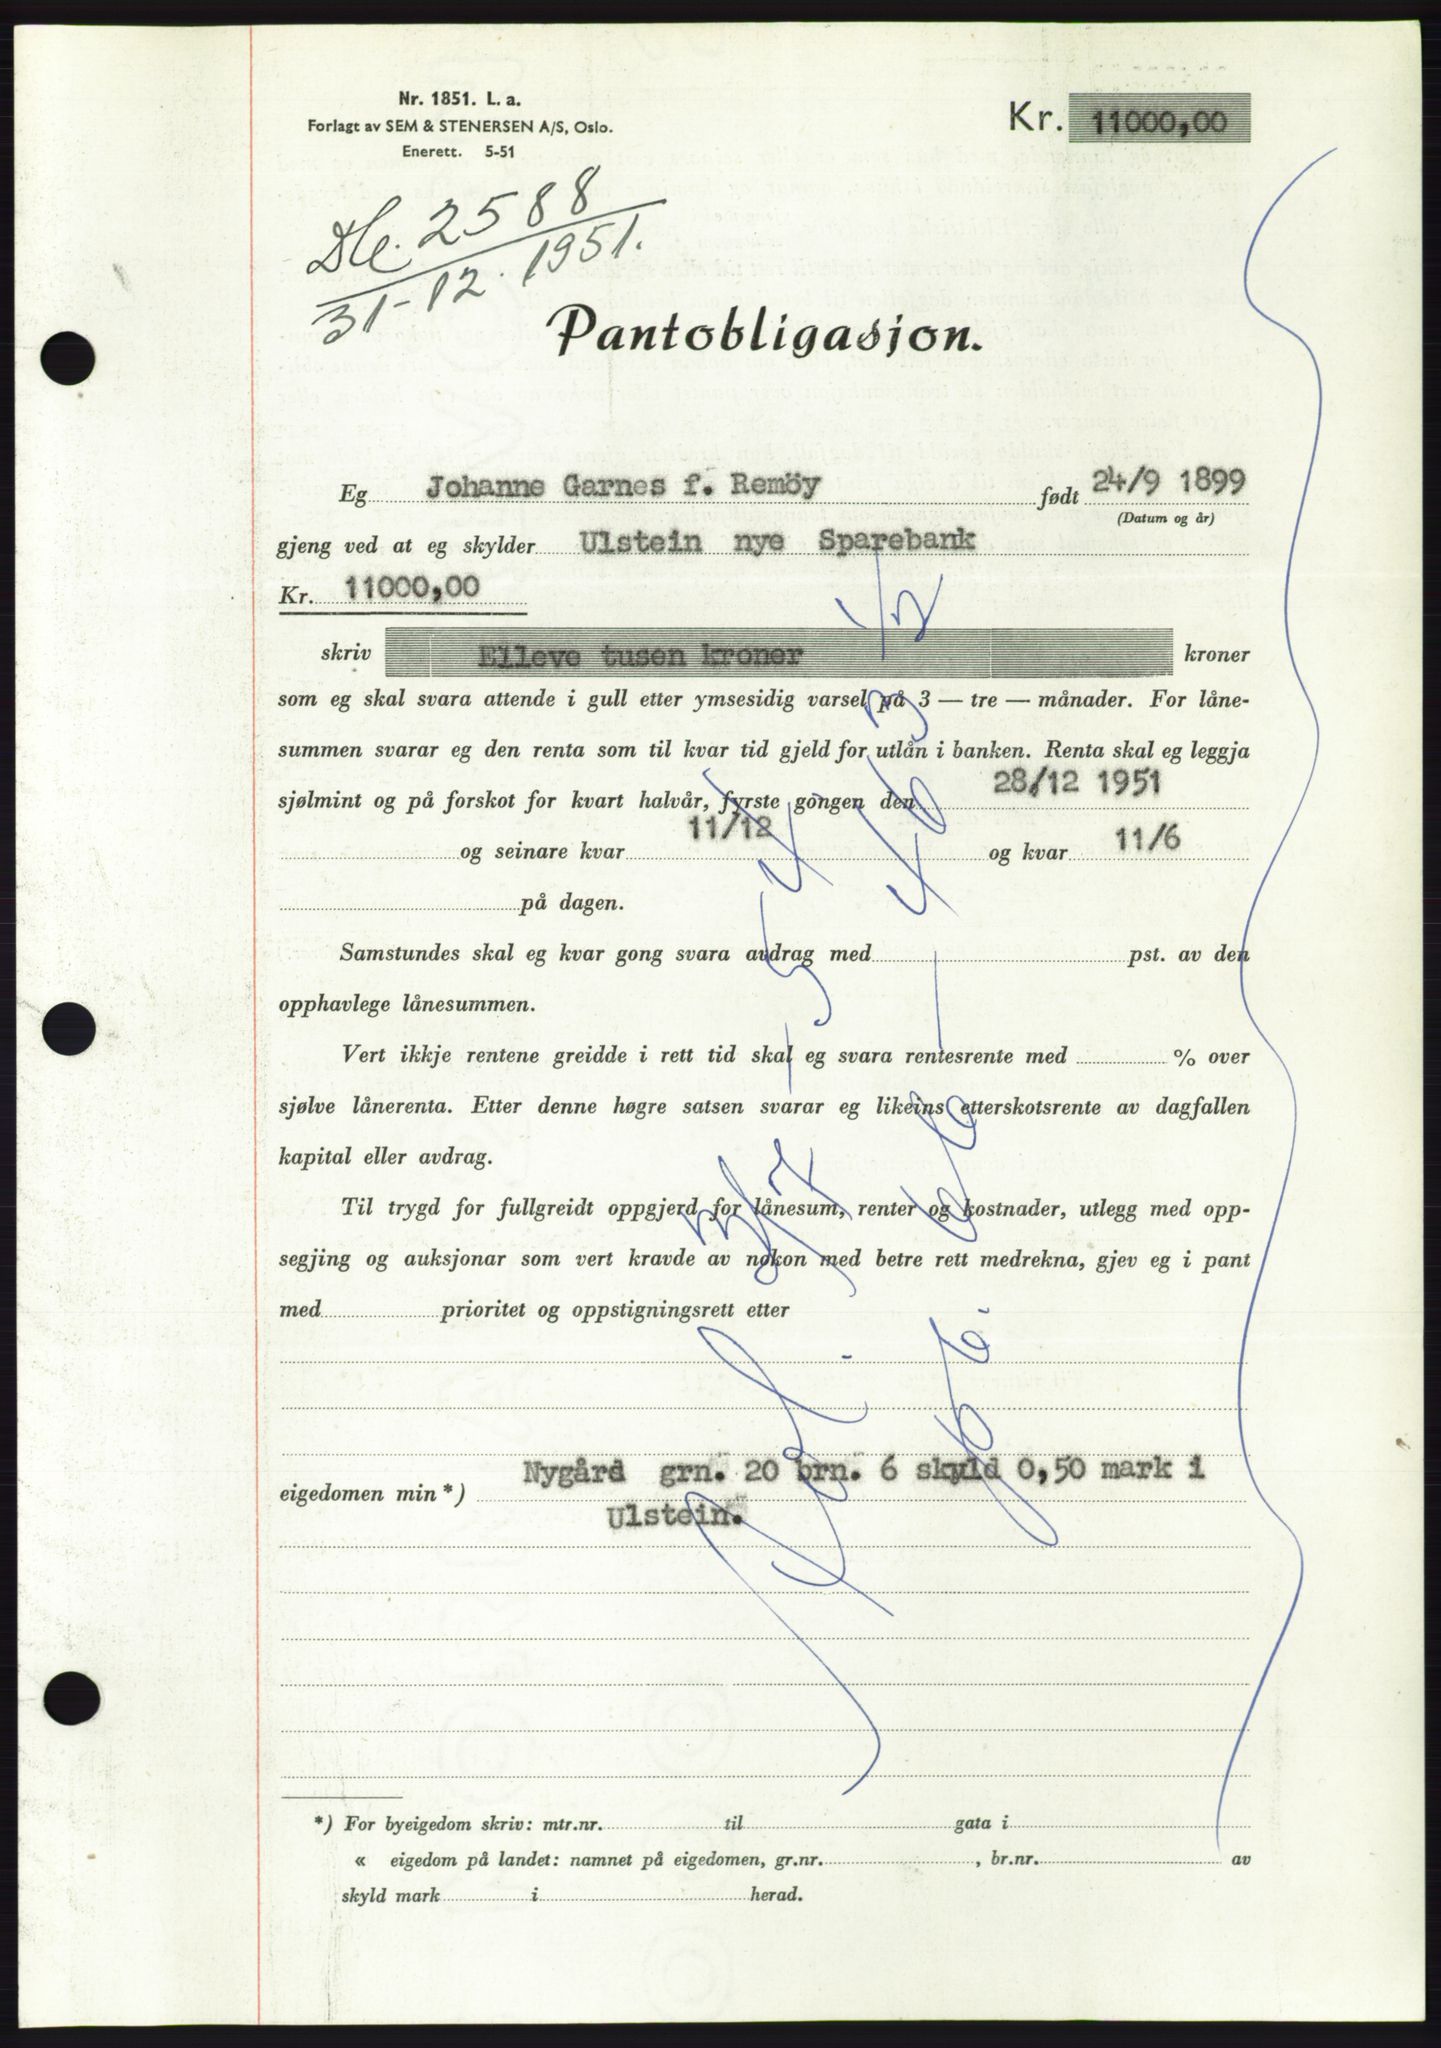 Nr. 1851. L. a.
Forlagt av SEM & STENERSEN A/S, Oslo.
Enerett. 5-51
Kr. 11000,00
2588
31-12. 1951.
Pantobligasjon.
Eg Johanne Garnes f. Remöy født 24/9 1899
(Datum og år)
gjeng ved at eg skylder Ulstein nye Sparebank
Kr. 11000,00
skriv Elleve tusen kroner kroner
som eg skal svara attende i gull etter ymsesidig varsel på 3 — tre — månader. For låne-
summen svarar eg den renta som til kvar tid gjeld for utlån i banken. Renta skal eg leggja
sjølmint og på forskot for kvart halvår, fyrste gongen den 28/12 1951
og seinare kvar 11/12 og kvar 11/6
på dagen.
Samstundes skal eg kvar gong svara avdrag med pst. av den
opphavlege lånesummen.
Vert ikkje rentene greidde i rett tid skal eg svara rentesrente med % over
sjølve lånerenta. Etter denne høgre satsen svarar eg likeins etterskotsrente av dagfallen
kapital eller avdrag.
Til trygd for fullgreidt oppgjerd for lånesum, renter og kostnader, utlegg med opp-
segjing og auksjonar som vert kravde av nokon med betre rett medrekna, gjev eg i pant
med prioritet og oppstigningsrett etter
eigedomen min *) Nygård grn. 20 brn. 6 skyld 0,50 mark i
Ulstein.
*) For byeigedom skriv: mtr.nr. til gata i
« eigedom på landet: namnet på eigedomen, gr.nr. , br.nr. av
skyld mark i herad.